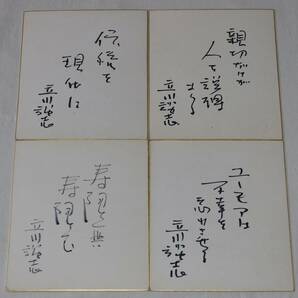 親切だけが
人を説得
する
立川談志
伝統を
現代に
立川談志
ユーモアは
不幸を
忘れさせる
立川談志
寿限無
寿限
立川談志